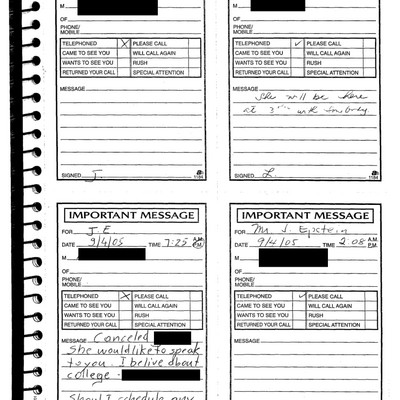 M
OF
PHONE/
MOBILE
TELEPHONED X PLEASE CALL
CAME TO SEE YOU WILL CALL AGAIN
WANTS TO SEE YOU RUSH
RETURNED YOUR CALL SPECIAL ATTENTION
MESSAGE
SIGNED J.
1184
OF
PHONE/
MOBILE
TELEPHONED ✓ PLEASE CALL
CAME TO SEE YOU WILL CALL AGAIN
WANTS TO SEE YOU RUSH
RETURNED YOUR CALL SPECIAL ATTENTION
MESSAGE
She will be here
at 3 with
SIGNED L.
1184
IMPORTANT MESSAGE
FOR J.E
DATE 9/4/05 TIME 7:25 A.M. P.M.
M
OF
PHONE/
MOBILE
TELEPHONED X PLEASE CALL
CAME TO SEE YOU WILL CALL AGAIN
WANTS TO SEE YOU RUSH
RETURNED YOUR CALL SPECIAL ATTENTION
MESSAGE Canceled
She would like to speak
to you. I belive about
college -
Should I schedule any
IMPORTANT MESSAGE
FOR Mr. J. Epstein
DATE 9/4/05 TIME 2:08 A.M. P.M.
M
OF
PHONE/
MOBILE
TELEPHONED ✓ PLEASE CALL
CAME TO SEE YOU WILL CALL AGAIN
WANTS TO SEE YOU RUSH
RETURNED YOUR CALL SPECIAL ATTENTION
MESSAGE